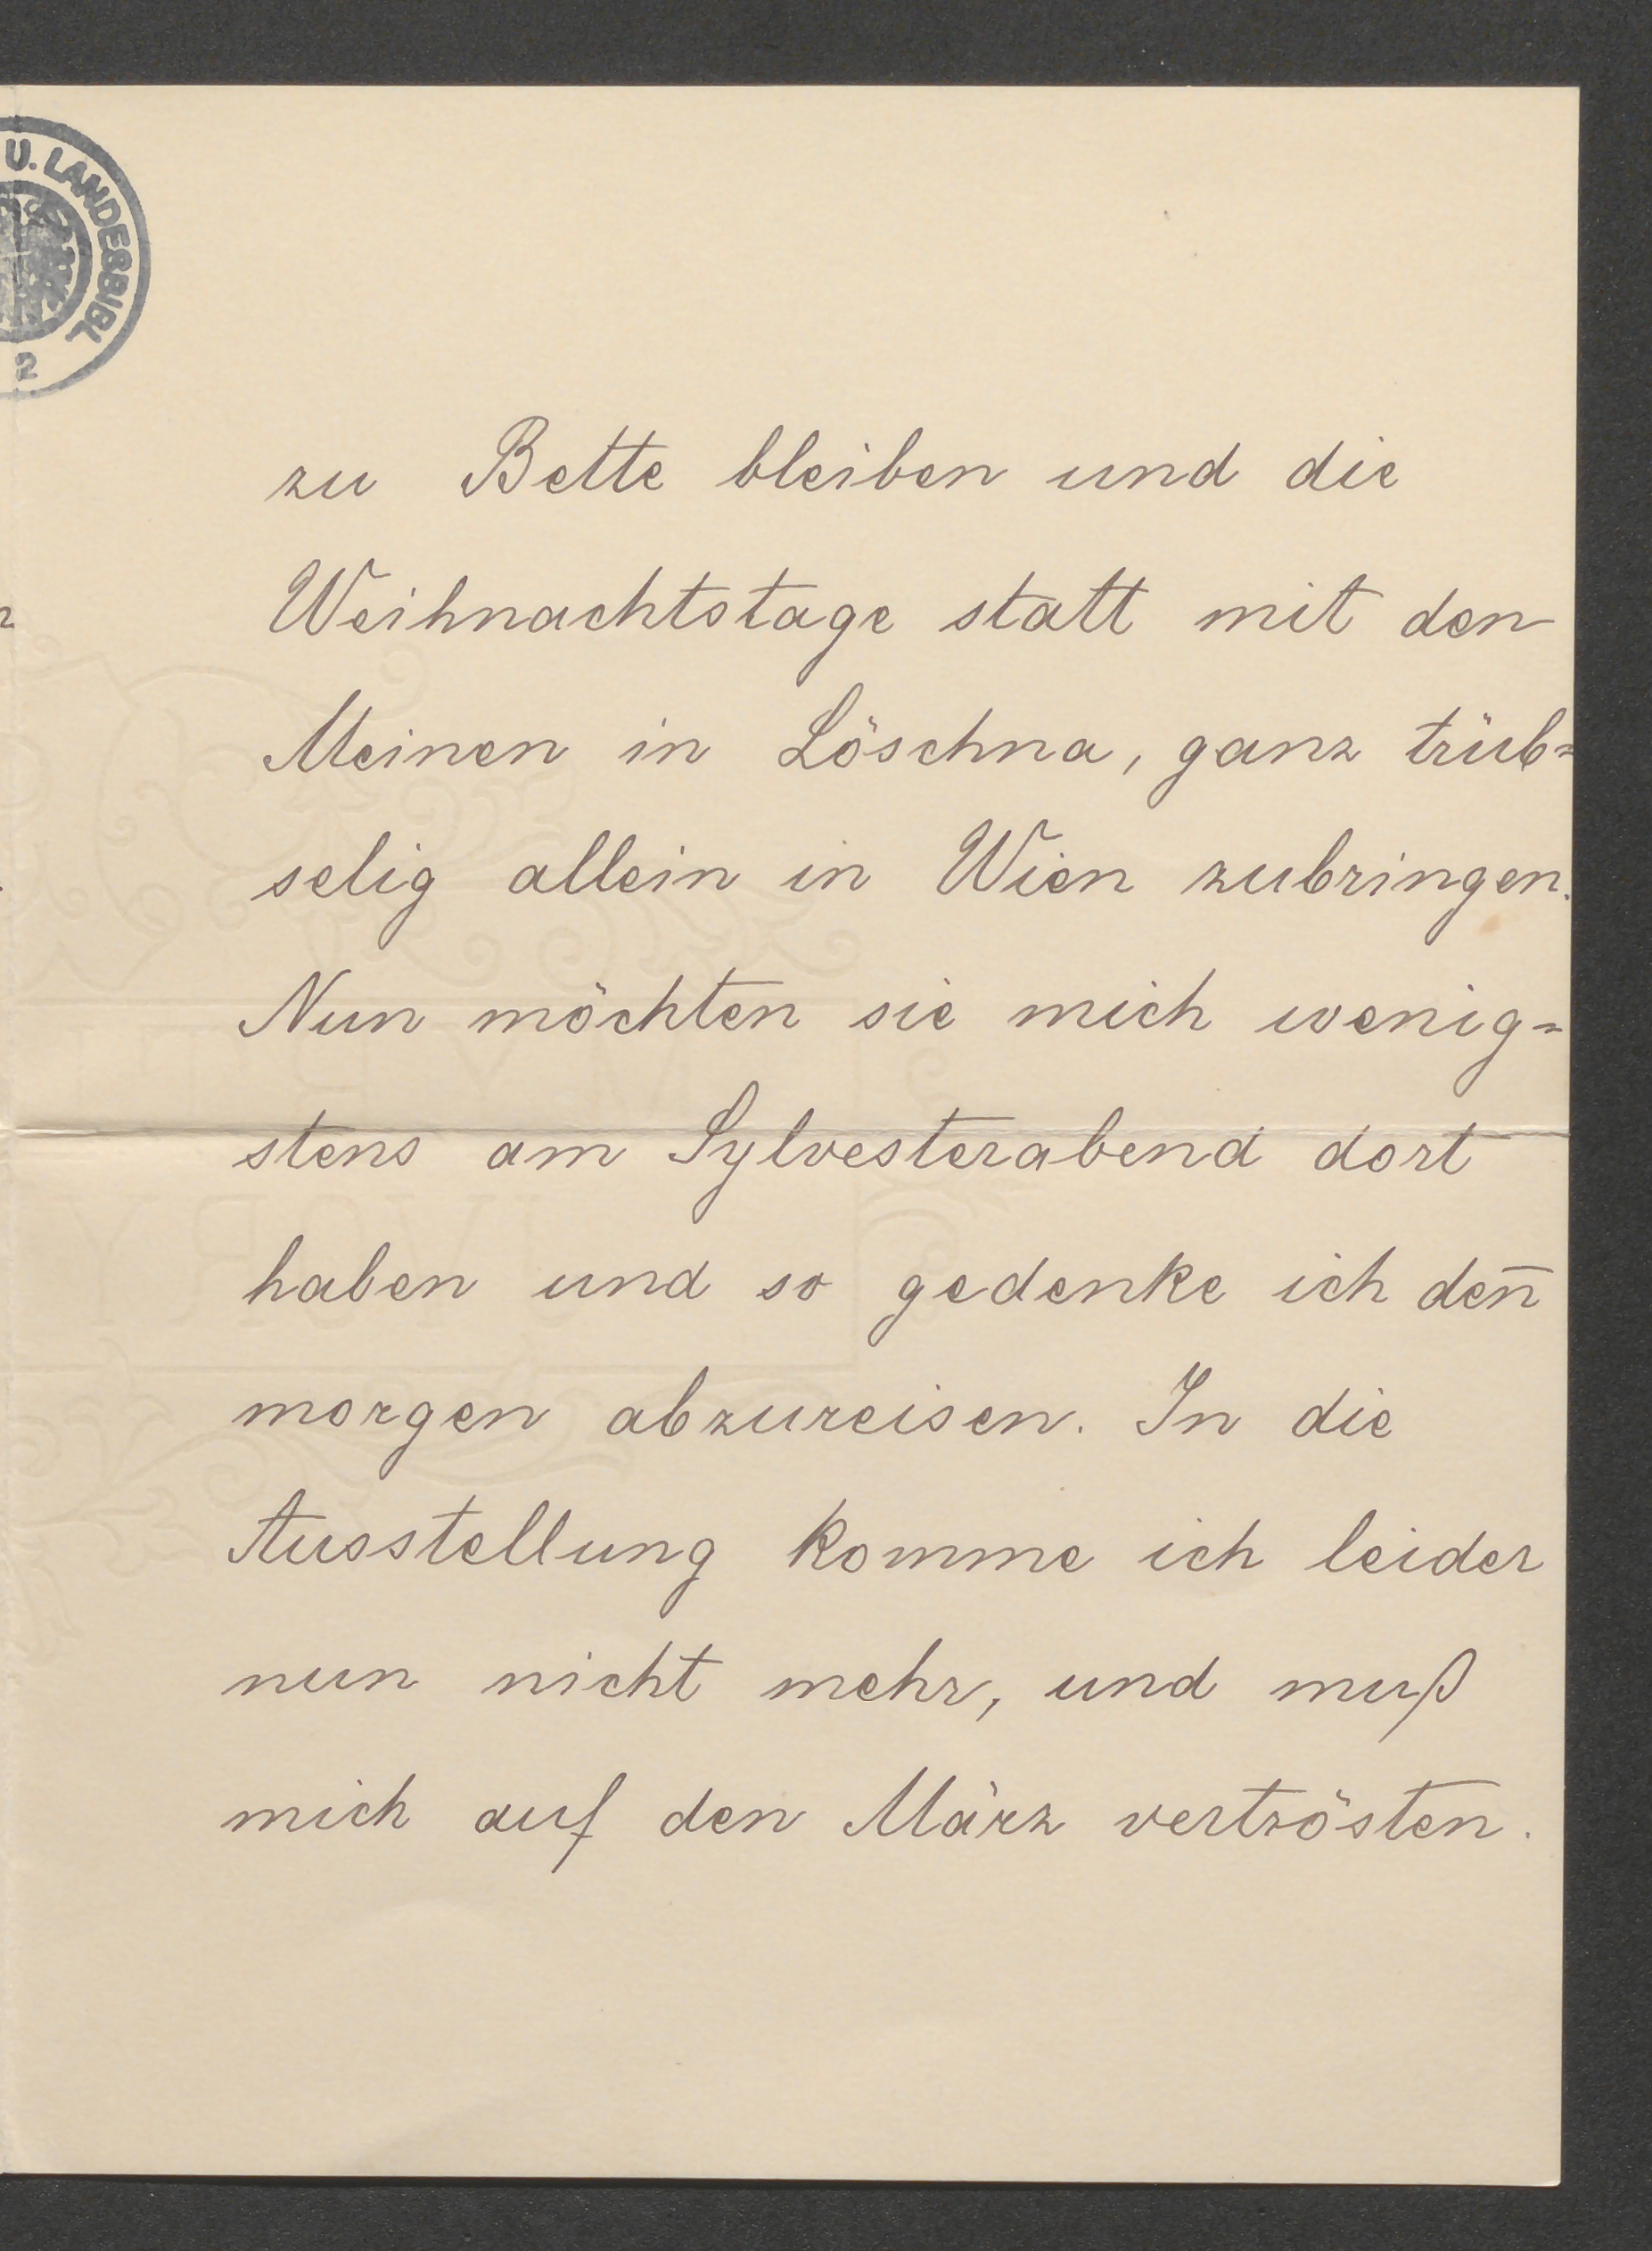 U. LANDESBIBL
2
zu Bette bleiben und die
Weihnachtstage statt mit den
Meinen in Löschna, ganz trüb=
selig allein in Wien zubringen.
Nun möchten sie mich wenig=
stens am Sylvesterabend dort
haben und so gedenke ich den̄
morgen abzureisen. In die
Ausstellung komme ich leider
nun nicht mehr, und muß
mich auf den März vertrösten.